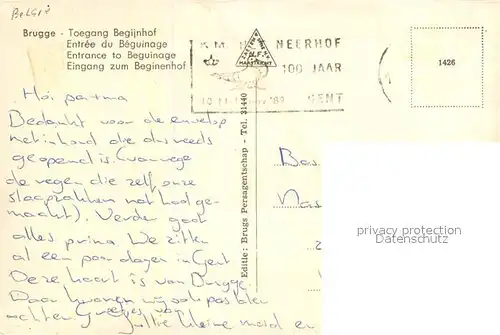 België
Brugge - Toegang Begijnhof
Entrée du Béguinage
Entrance to Beguinage
Eingang zum Beginenhof
K.M. NEERHOF
100 JAAR
GENT
1426
Hoi partma
Bedankt voor de envelop
met inhoud die dus reeds
geopend is (vanwege
de regen die zelf onze
slaapzakken nat had ge-
maakt). Verder gaat
alles prima. We zitten
al een paar dagen in Gent
Deze kaart is van Brugge.
Daar kwamen wij ook pas later
achter. Groetjes van
jullie kleine meid en
Editie: Brugs Persagentschap - Tel. 31440
Bas
Nas
privacy protection
Datenschutz